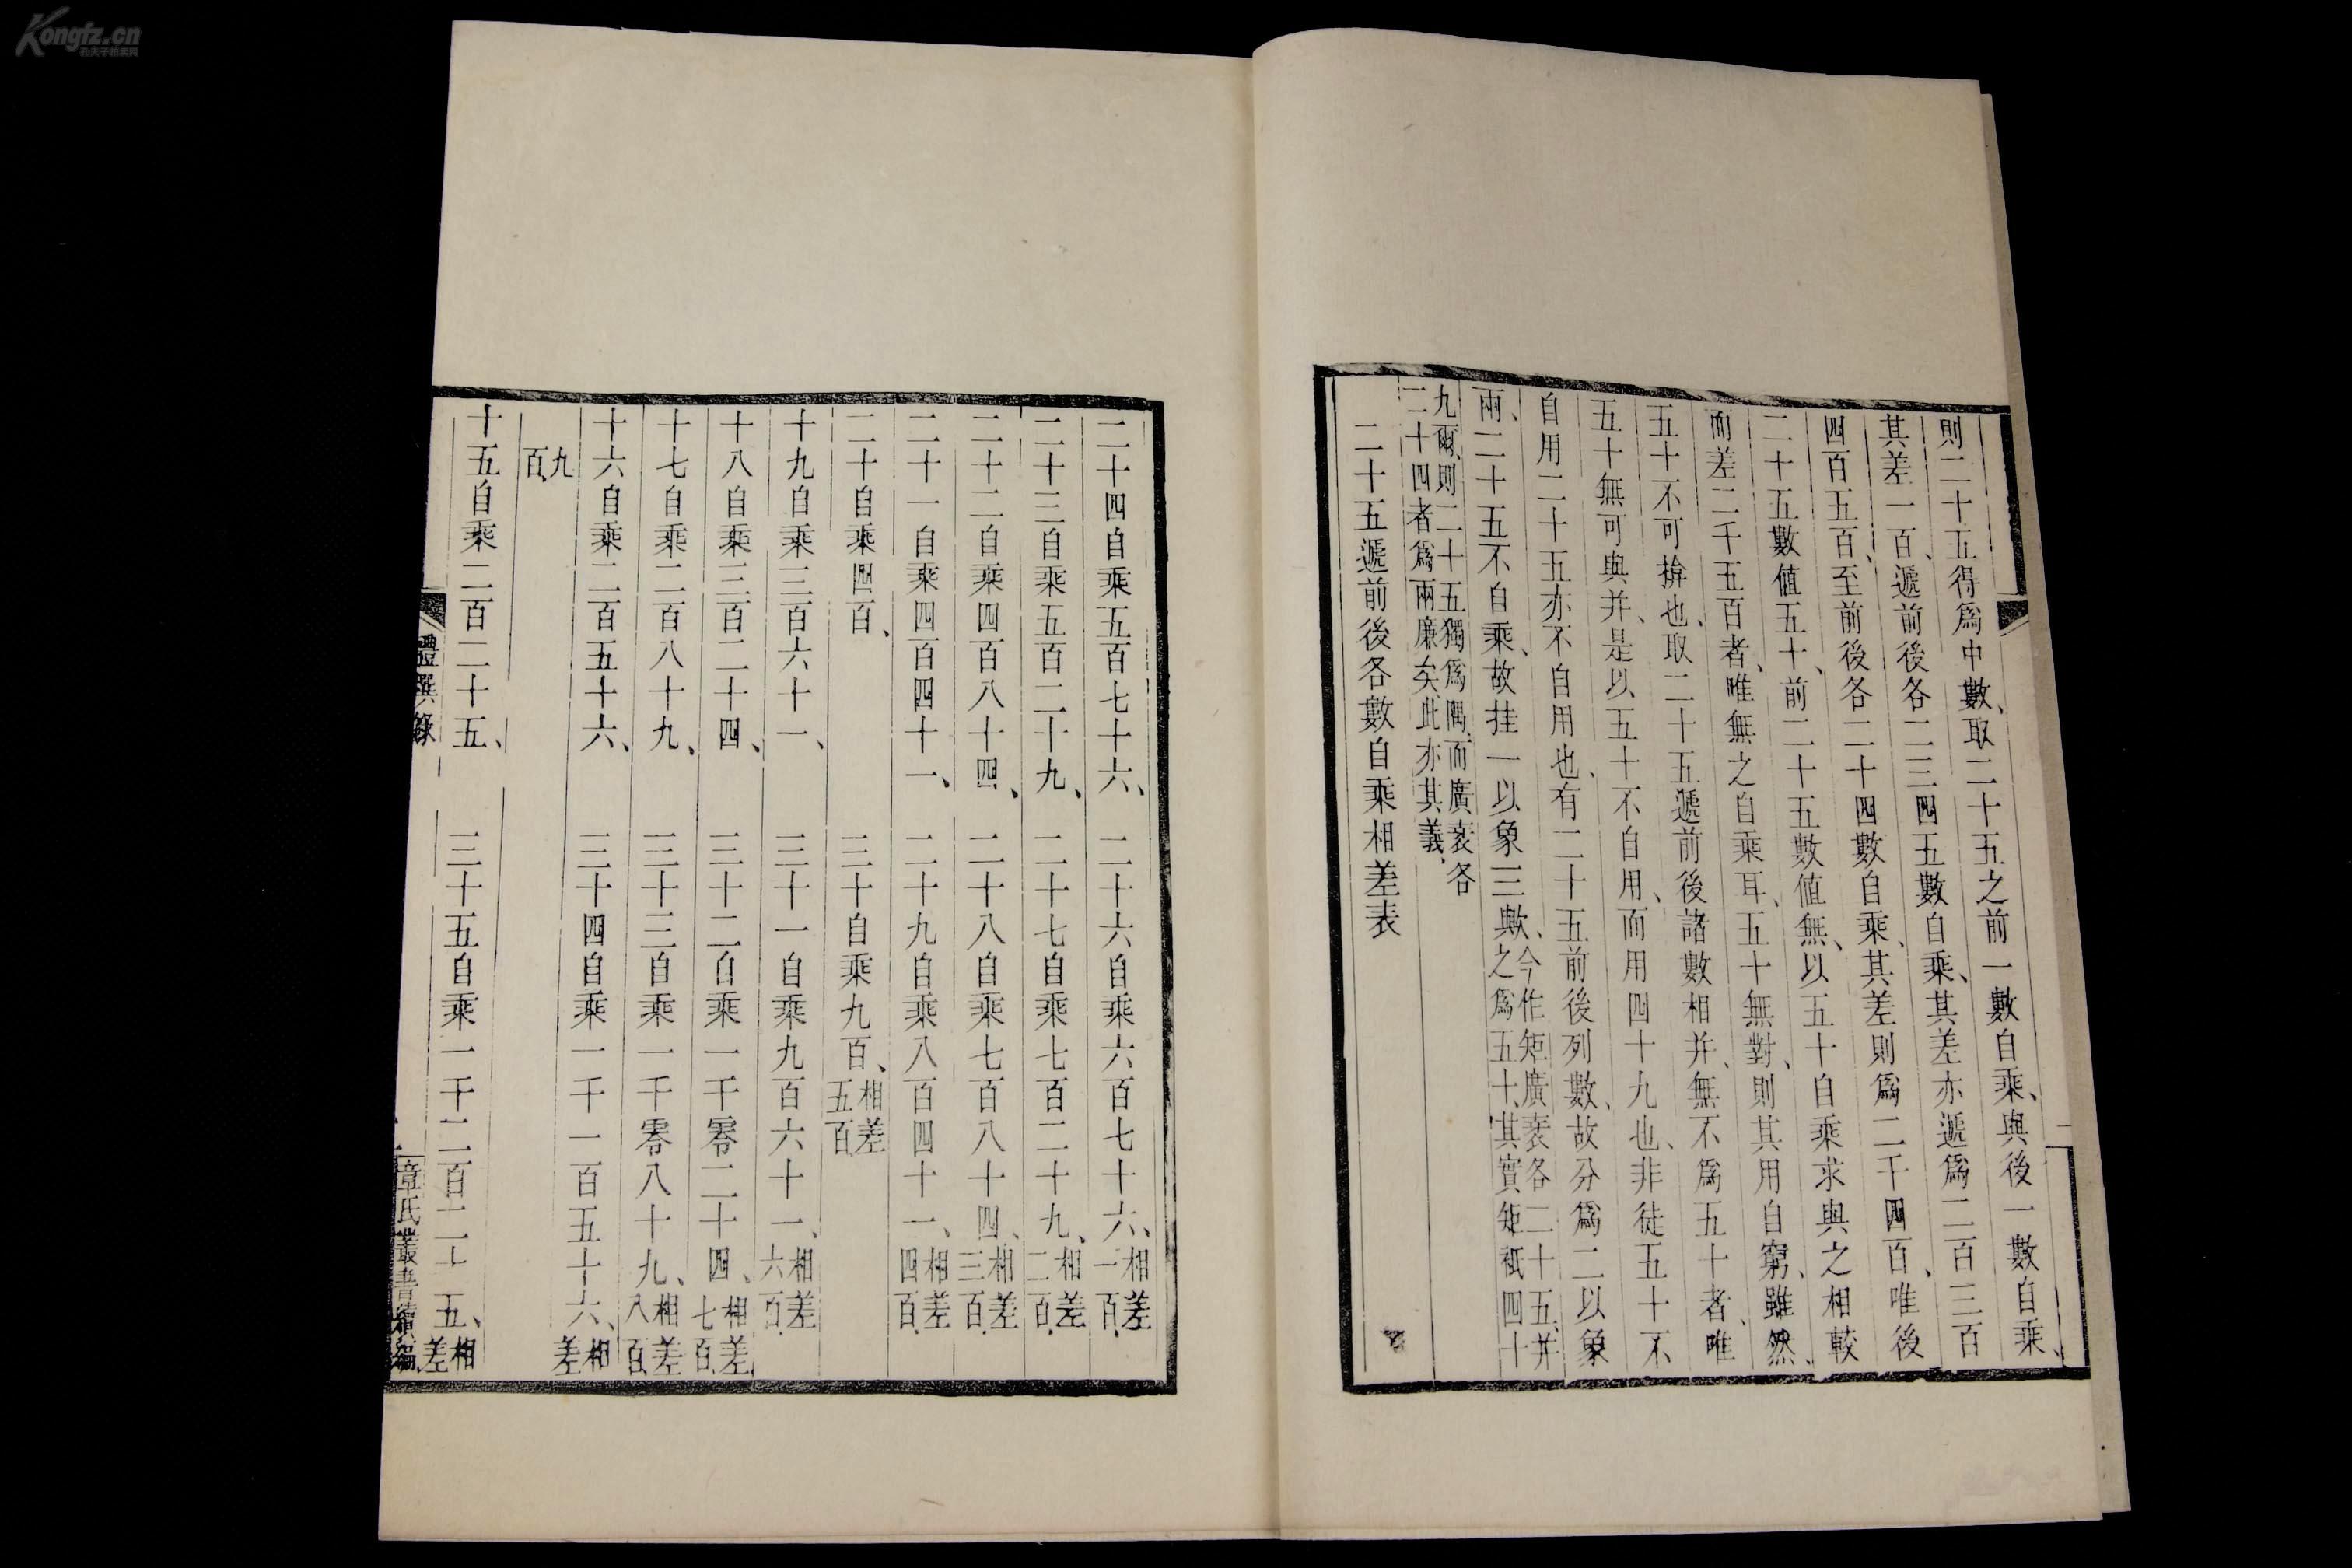 Kongfz.cn
孔夫子拍卖网
則二十五得爲中數、取二十五之前一數自乘、與後一數自乘、
其差一百、遞前後各二三四五數自乘、其差亦遞爲二百三百
四百五百、至前後各二十四數自乘、其差則爲二千四百、唯後
二十五數值五十、前二十五數值無、以五十自乘求與之相較
而差二千五百者、唯無之自乘耳、五十無對、則其用自窮、雖然、
五十不可揜也、取二十五遞前後諸數相并、無不爲五十者、唯
五十無可與并、是以五十不自用、而用四十九也、非徒五十不
自用二十五亦不自用也、有二十五前後列數、故分爲二以象
兩、二十五不自乘、故挂一以象三歟、今作矩廣袤各二十五、并
之爲五十、其實矩祇四十
九爾、則二十五獨爲隅、而廣袤各
二十四者爲兩廉矣、此亦其義、
二十五遞前後各數自乘相差表
二十四自乘五百七十六、 二十六自乘六百七十六、相差一百、
二十三自乘五百二十九、 二十七自乘七百二十九、相差二百、
二十二自乘四百八十四、 二十八自乘七百八十四、相差三百、
二十一自乘四百四十一、 二十九自乘八百四十一、相差四百、
二十自乘四百、 三十自乘九百、相差五百
十九自乘三百六十一、 三十一自乘九百六十一、相差六百、
十八自乘三百二十四、 三十二自乘一千零二十四、相差七百、
十七自乘二百八十九、 三十三自乘一千零八十九、相差八百、
十六自乘二百五十六、 三十四自乘一千一百五十六、相差
九百、
十五自乘二百二十五、 三十五自乘一千二百二十五、相差
體撰錄
章氏叢書續編